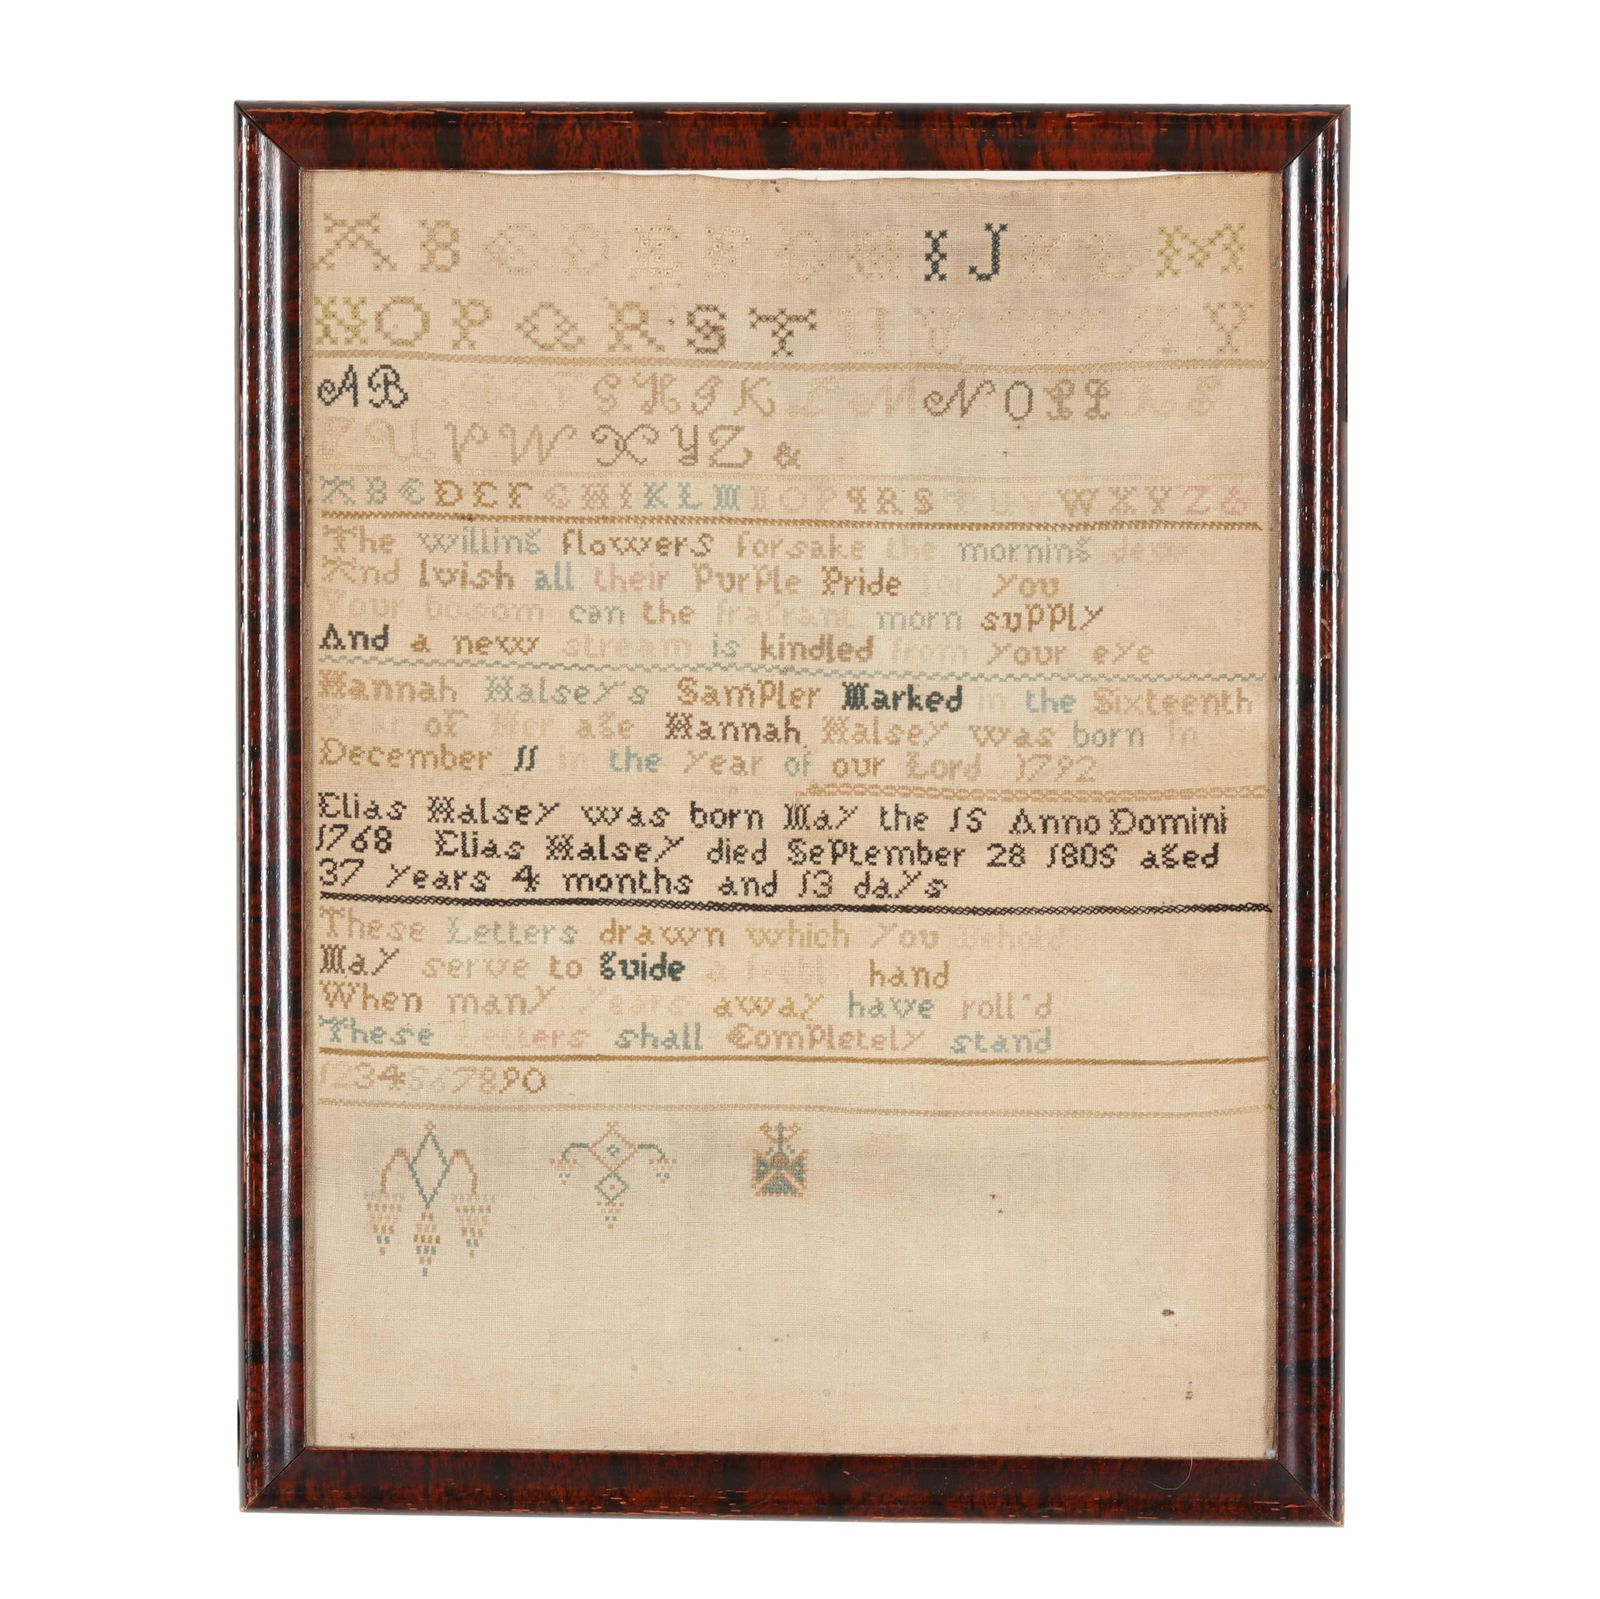 A B C D E F G H I J K L M
N O P Q R S T U V W X Y
A B G H I K L M N O P Q R S
T U V W X Y Z &
A B C D E F G H I K L M N O P Q R S T U V W X Y Z &
The willing flowers forsake the morning dew
And I wish all their PurPle Pride for you
Your bosom can the fragrant morn suPPly
And a new stream is kindled from your eye
Hannah Halsey's SamPler Marked in the Sixteenth
Year of Her age Hannah Halsey was born in
December 11 in the year of our Lord 1792
Elias Halsey was born May the 15 Anno Domini
1768 Elias Halsey died SePtember 28 1805 aged
37 years 4 months and 13 days
These Letters drawn which you behold
May serve to guide a hand
When many years away have roll'd
These Letters shall ComPletely stand
1234567890